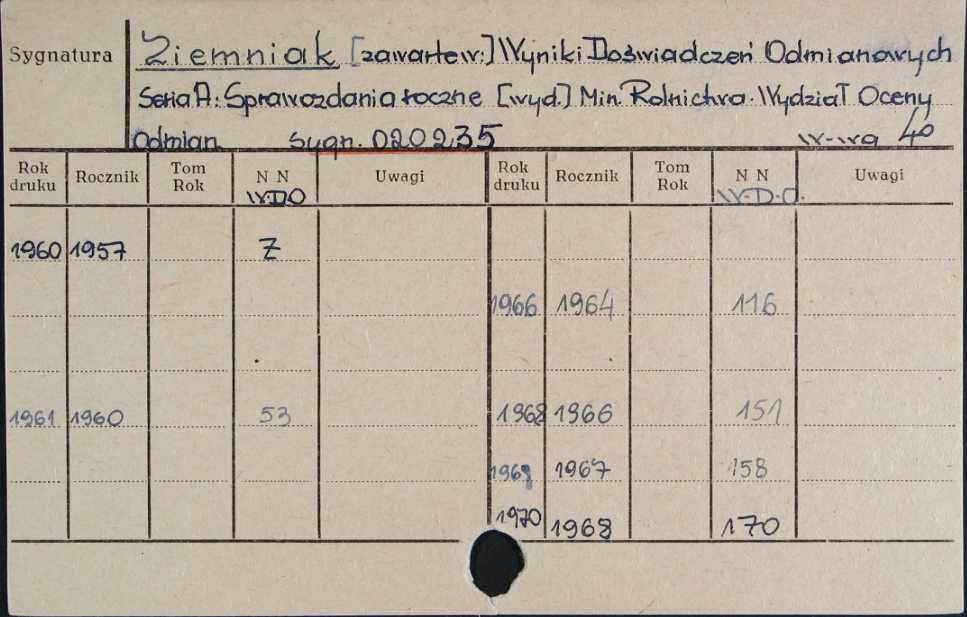 Sygnatura
Ziemniak [zawarte w:] Wyniki Doświadczeń Odmianowych
Seria A: Sprawozdania roczne [wyd.] Min. Rolnictwa. Wydział Oceny
Odmian Sygn. 020235 W-wa 4°
Rok druku Rocznik Tom Rok N N W.D.O Uwagi Rok druku Rocznik Tom Rok N N W.D.O. Uwagi
1960 1957 Z
1966 1964 116
1961 1960 53 1968 1966 151
1967 158
1970 1968 170